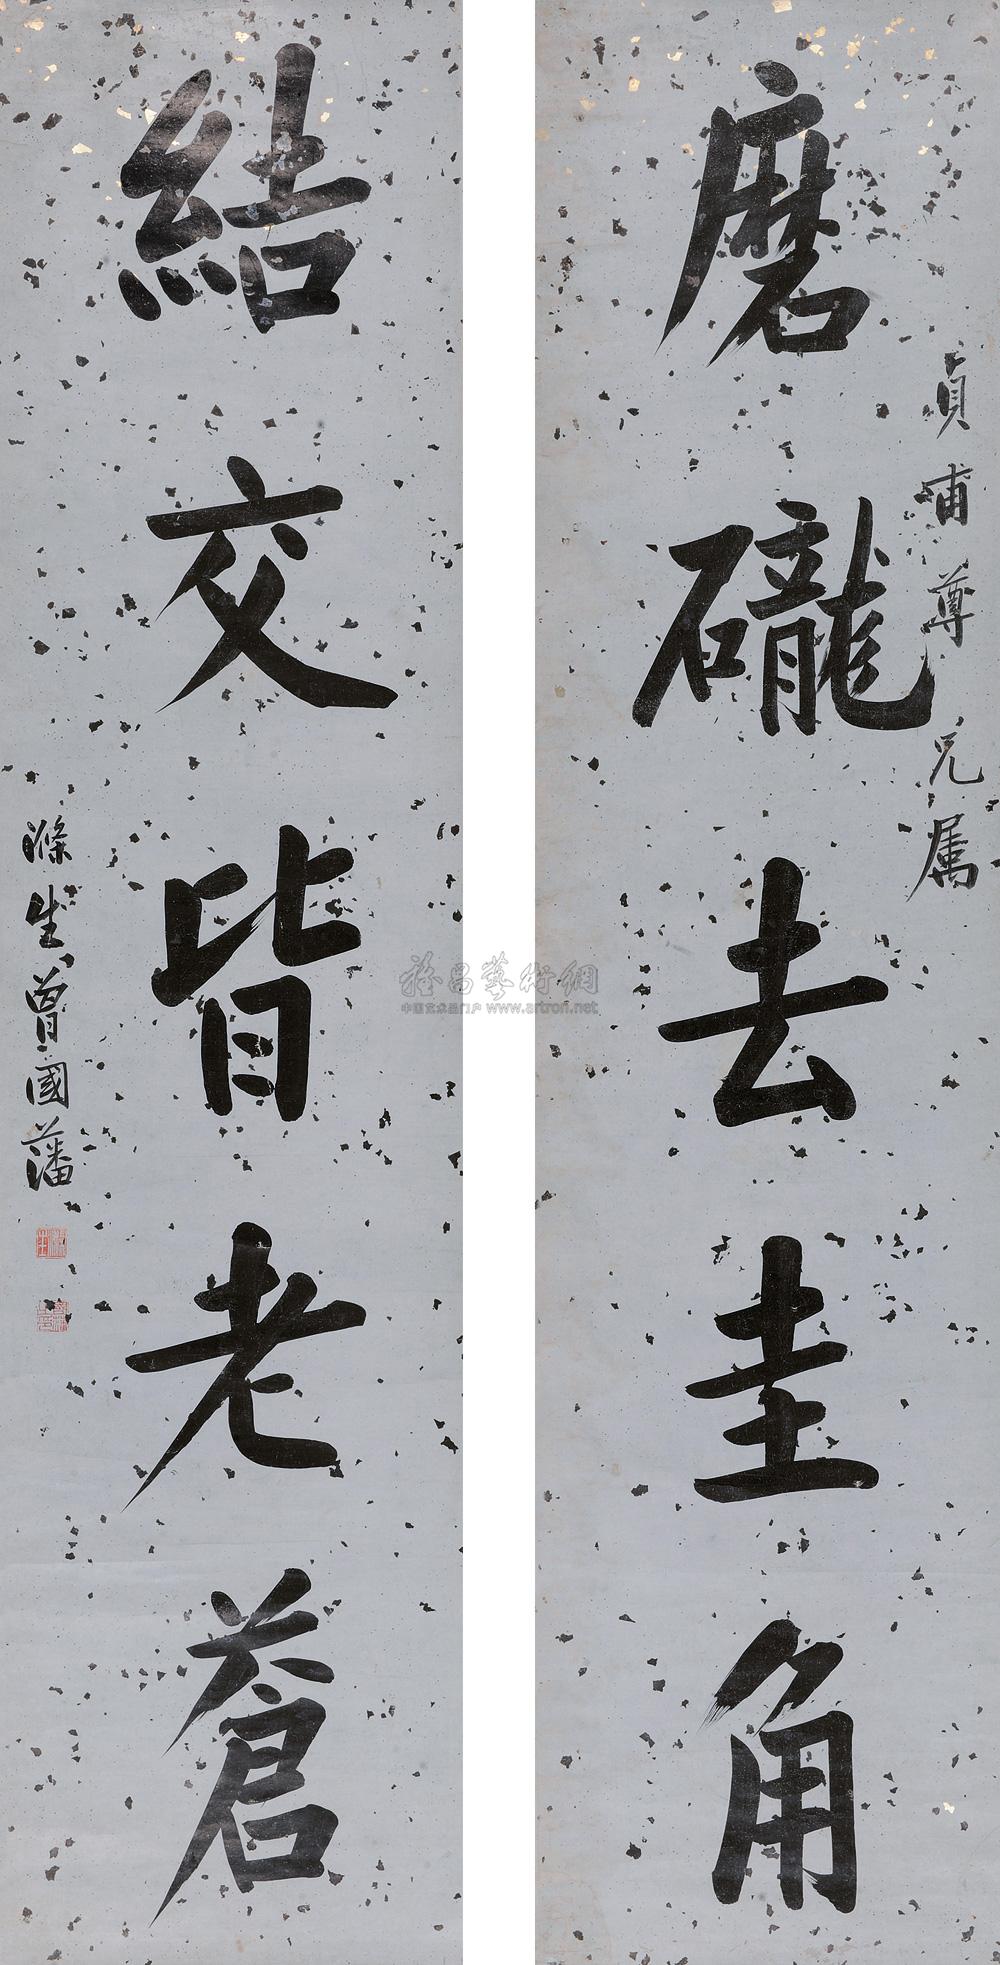 磨礲去圭角
貞甫尊兄属
結交皆老蒼
滌生曾國藩
雅昌藝術網
中国艺术品门户 www.artron.net